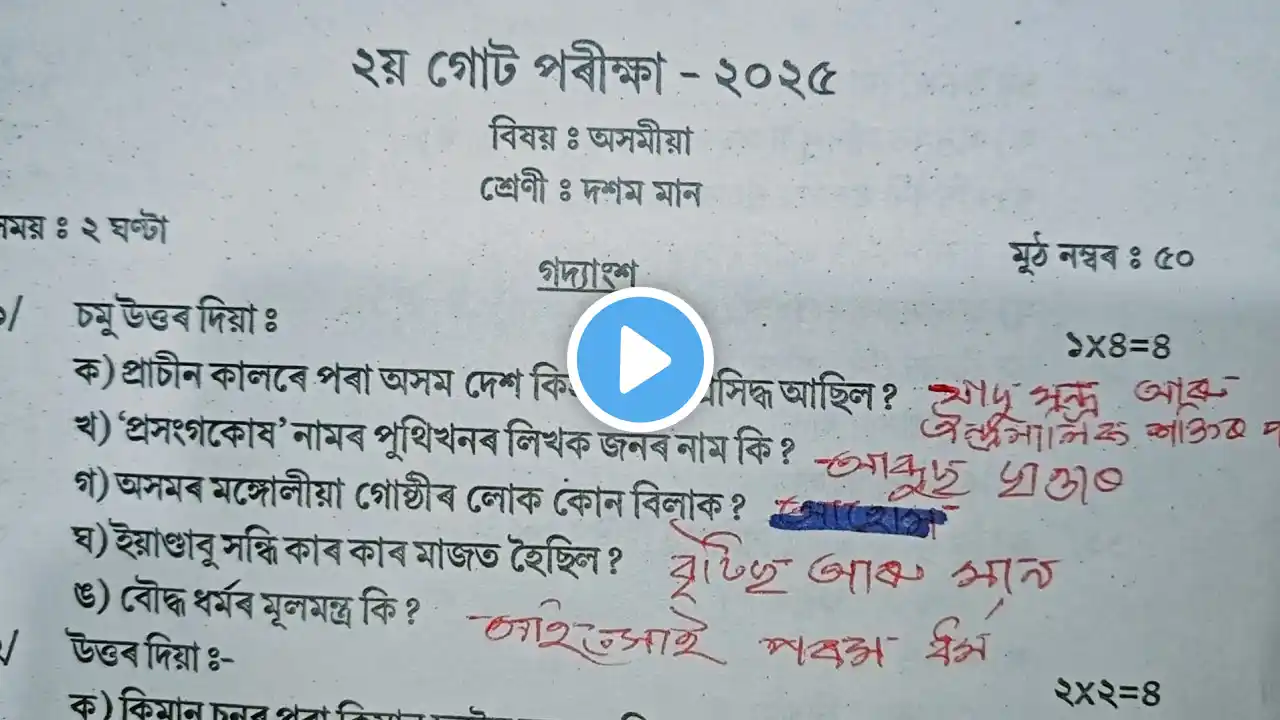 ২য় গোট পৰীক্ষা - ২০২৫
বিষয় ঃ অসমীয়া
শ্ৰেণী ঃ দশম মান
সময় ঃ ২ ঘণ্টা
মূঠ নম্বৰ ঃ ৫০
গদ্যাংশ
চমু উত্তৰ দিয়া ঃ
১X৪=৪
ক) প্ৰাচীন কালৰে পৰা অসম দেশ আছিল ? যাদু মন্ত্ৰ আৰু
ঐন্দ্ৰসালিক শক্তিৰ
খ) ‘প্ৰসংগকোষ’ নামৰ পুথিখনৰ লিখক জনৰ নাম কি ? আব্দুছ ছাত্তাৰ
গ) অসমৰ মঙ্গোলীয়া গোষ্ঠীৰ লোক কোন বিলাক ? আহোম
ঘ) ইয়াণ্ডাবু সন্ধি কাৰ কাৰ মাজত হৈছিল ? বৃটিছ আৰু মান
ঙ) বৌদ্ধ ধৰ্মৰ মূলমন্ত্ৰ কি ? পৰম ধৰ্ম
উত্তৰ দিয়া ঃ-
২X২=৪
ক) কিমান চনৰ পৰা কিমান